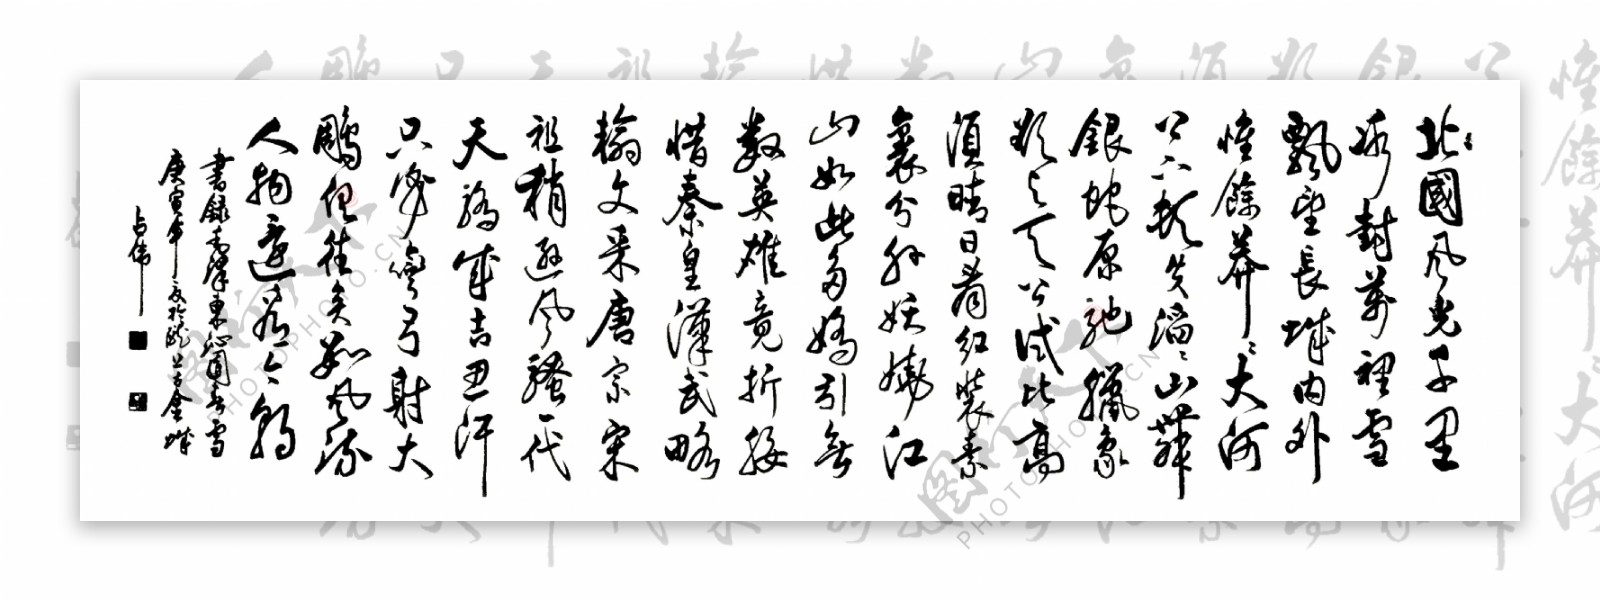 北國風光千里
冰封萬裡雪
飄望長城内外
惟餘莽〻大河
上下頓失滔〻山舞
銀蛇原馳臘象
欲與天公試比高
須晴日看紅裝素
裹分外妖嬈江
山如此多嬌引無
數英雄競折腰
惜秦皇漢武略
輸文采唐宗宋
祖稍遜風騷一代
天驕成吉思汗
只識彎弓射大
鵰俱往矣數風流
人物還看今朝
書録毛澤東沁園春雪
庚寅年夏於隴上古金城
占偉